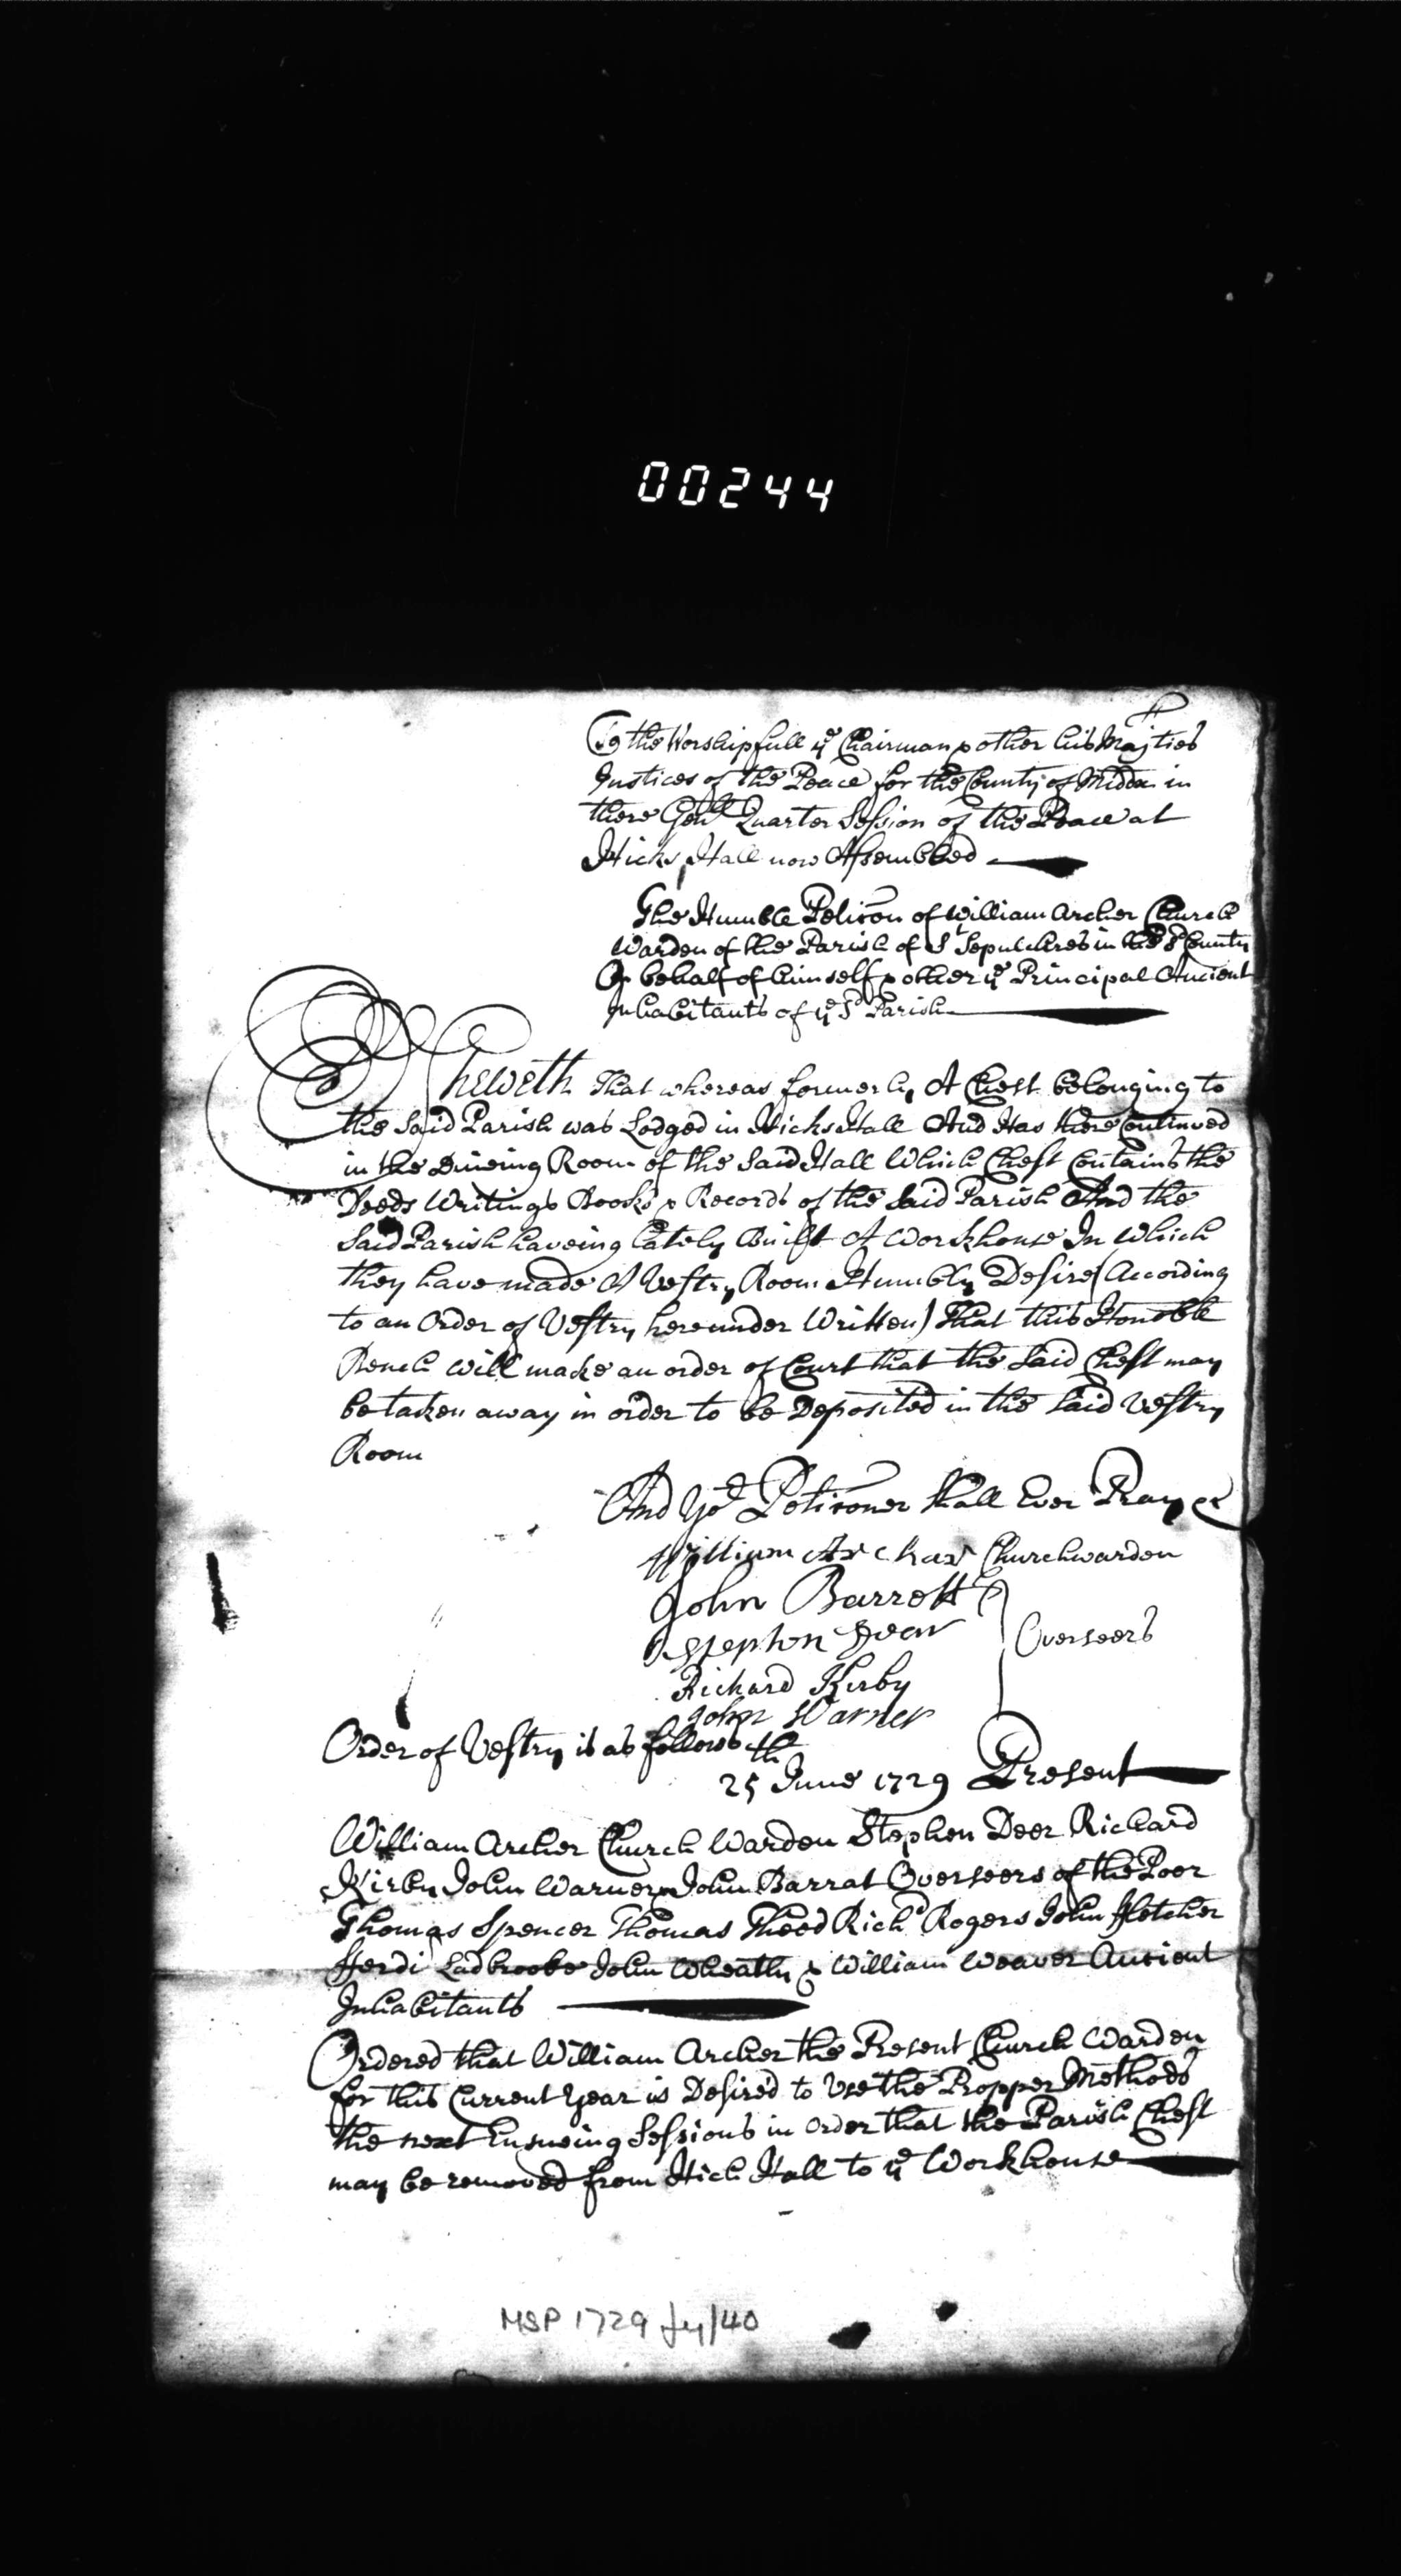 00244
To the Worshipfull ye Chairman & other his Majties
Justices of the Peace for the County of Middx in
there Genll Quarter Session of the Peace at
Hicks Hall now Assembled
The Humble Peticon of William Archer Church
Warden of the Parish of St Sepulchres in the sd County
On behalf of himself & other ye Principal Ancient
Inhabitants of ye Sd Parish
Sheweth That whereas formerly A Chest belonging to
the Said Parish was Lodged in Hicks Hall And Has there Continued
in the Dineing Room of the Said Hall Which Chest Contains the
Deeds Writings Books & Records of the Said Parish And the
Said Parish haveing Lately Built A Workhouse In Which
they have made A Vestry Room Humbly Desire (According
to an Order of Vestry hereunder Written) That this Honoble
Bench will make an order of Court that the Said Chest may
be taken away in order to be Deposited in the Said Vestry
Room
And Yor Peticoner Shall Ever Pray &c
William Archar Churchwarden
John Barrett
Stephen Dear Overseers
Richard Kirby
John Warner
Order of Vestry is as follows
25th June 1729 Present
William Archer Church Warden Stephen Deer Richard
Kirby John Warner & John Barrat Overseers of the Poor
Thomas Spencer Thomas Theed Richd Rogers John ffletcher
fferdi Ladbrooke John Wheatly & William Weaver Antient
Inhabitants
Ordered that William Archer the Present Church Warden
for this Current Year is Desired to Use the Propper Methods
the next Ensueing Sessions in order that the Parish Chest
may be removed from Hich Hall to ye Workhouse
MSP 1729 Jy/40